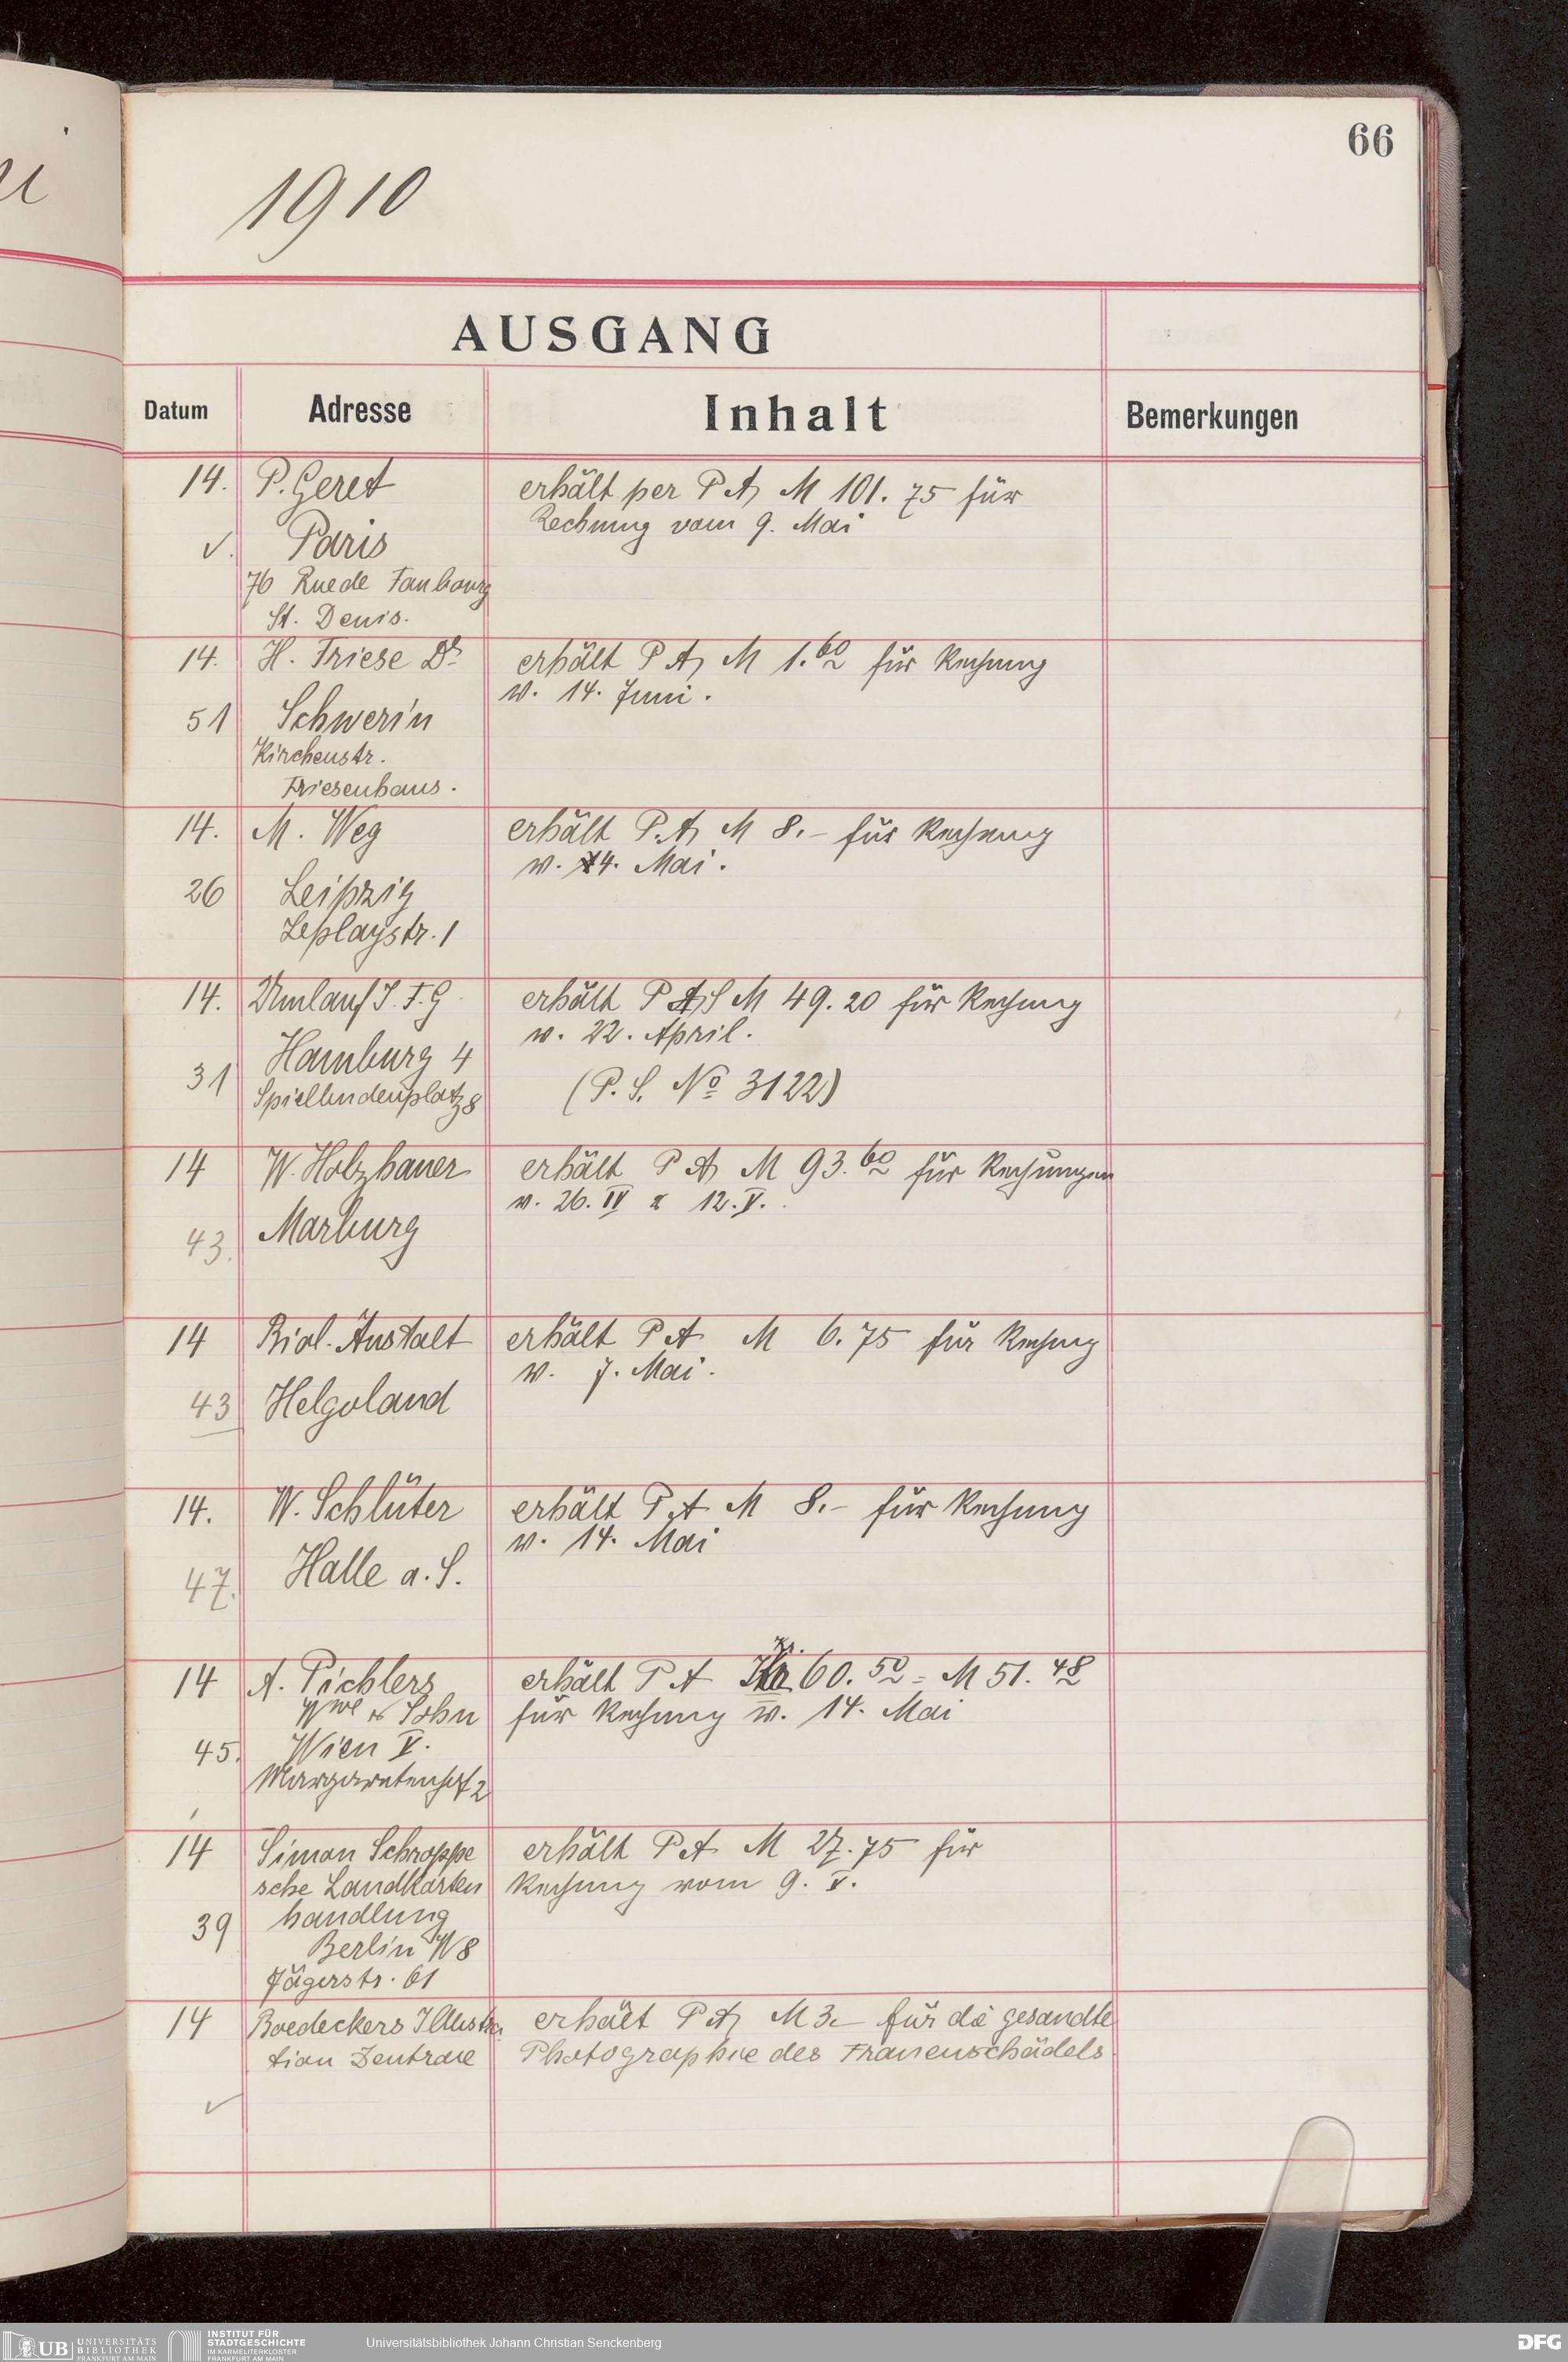 66
1910
AUSGANG
Datum Adresse Inhalt Bemerkungen
14. P. Geret erhält per P A M 101. 75 für
Rechnung vom 9. Mai
✓. Paris
76 Rue de Faubourg
St. Denis.
14. H. Friese Dr. erhält P A M 1.60 für Rechnung
v. 14. Juni.
51 Schwerin
Kirchenstr.
Friesenhaus.
14. M. Weg erhält P. A M 8.- für Rechnung
v. 4. Mai.
26 Leipzig
Leplaystr. 1
14. Umlauf J. F. G. erhält P A M 49. 20 für Rechnung
v. 22. April.
31 Hamburg 4
(P. S. No 3122)
Spielbudenplatz 8
14 W. Holzhauer erhält P A M 93.60 für Rechnungen
v. 26. IV & 12. V.
43. Marburg
14 Biol. Anstalt erhält P A M 6. 75 für Rechnung
v. 7. Mai.
43 Helgoland
14. W. Schlüter erhält P. A M 8.- für Rechnung
v. 14. Mai
47. Halle a. S.
14 A. Pichlers erhält P A Kr. 60. 50 = M 51. 48
Wwe & Sohn für Rechnung v. 14. Mai
45. Wien V.
Margaretenhof 2
14 Simon Schroppe erhält P. A M 27. 75 für
sche Landkarten Rechnung vom 9. V.
39 handlung
Berlin W8
Jägerstr. 61
14 Boedeckers Illustra erhält P A M 3.- für die gesandte
tion Zentrale Photographie des Frauenschädels
✓
UB UNIVERSITÄTS
BIBLIOTHEK
FRANKFURT AM MAIN
INSTITUT FÜR
STADTGESCHICHTE
IM KARMELITERKLOSTER
FRANKFURT AM MAIN
Universitätsbibliothek Johann Christian Senckenberg
DFG